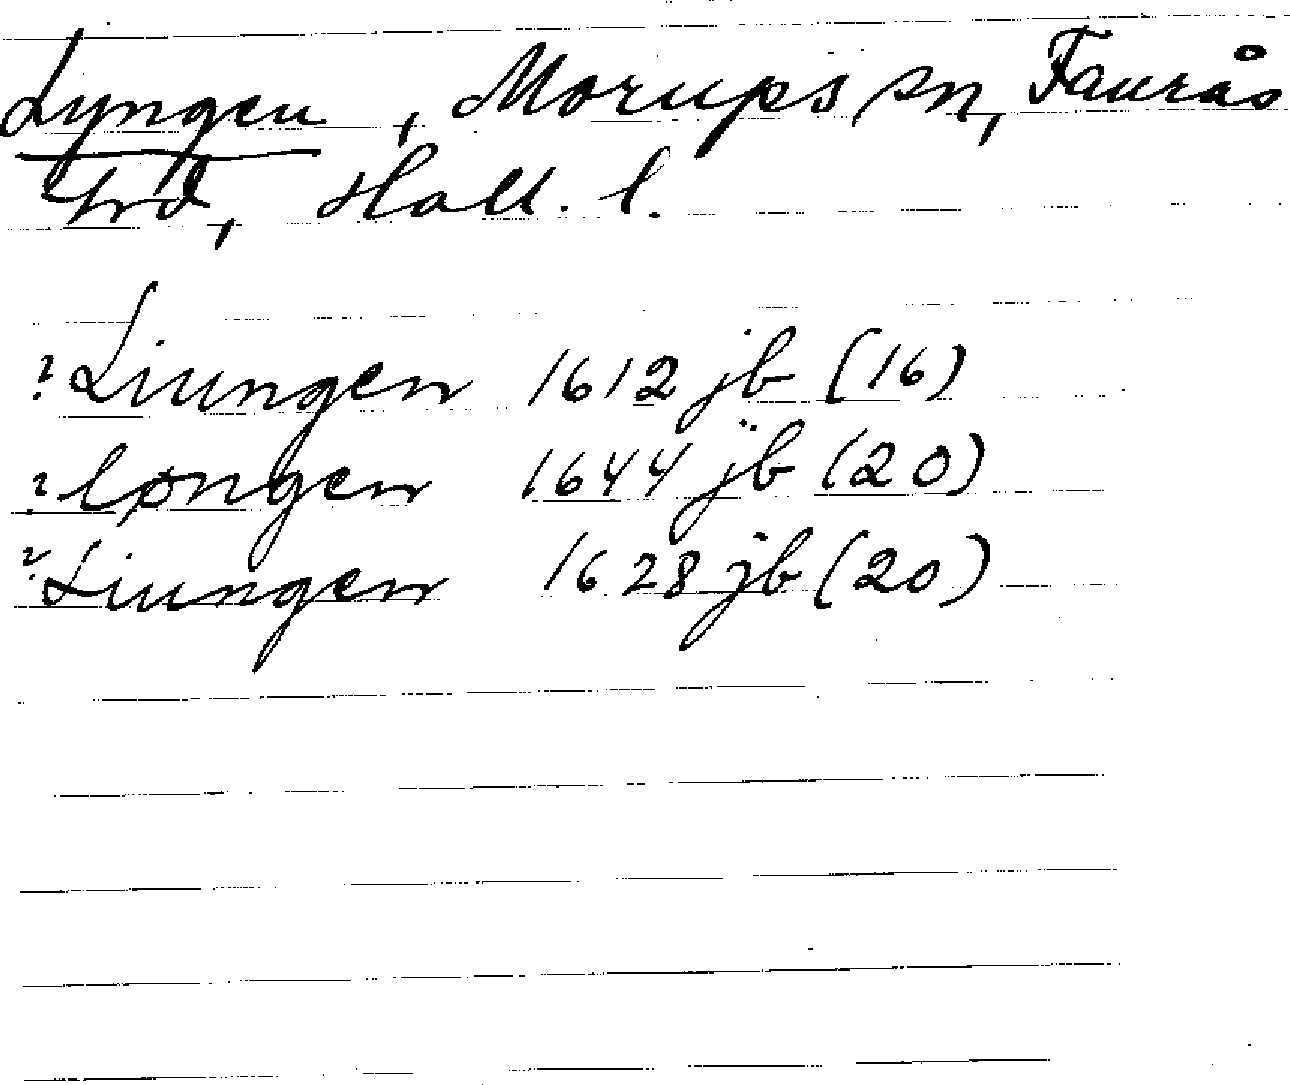 Lyngen, Morups sn, Faurås
hrd, Hall. l.
? Liungen 1612 jb (16)
? Løngen 1644 jb (20)
? Liungen 1628 jb (20)